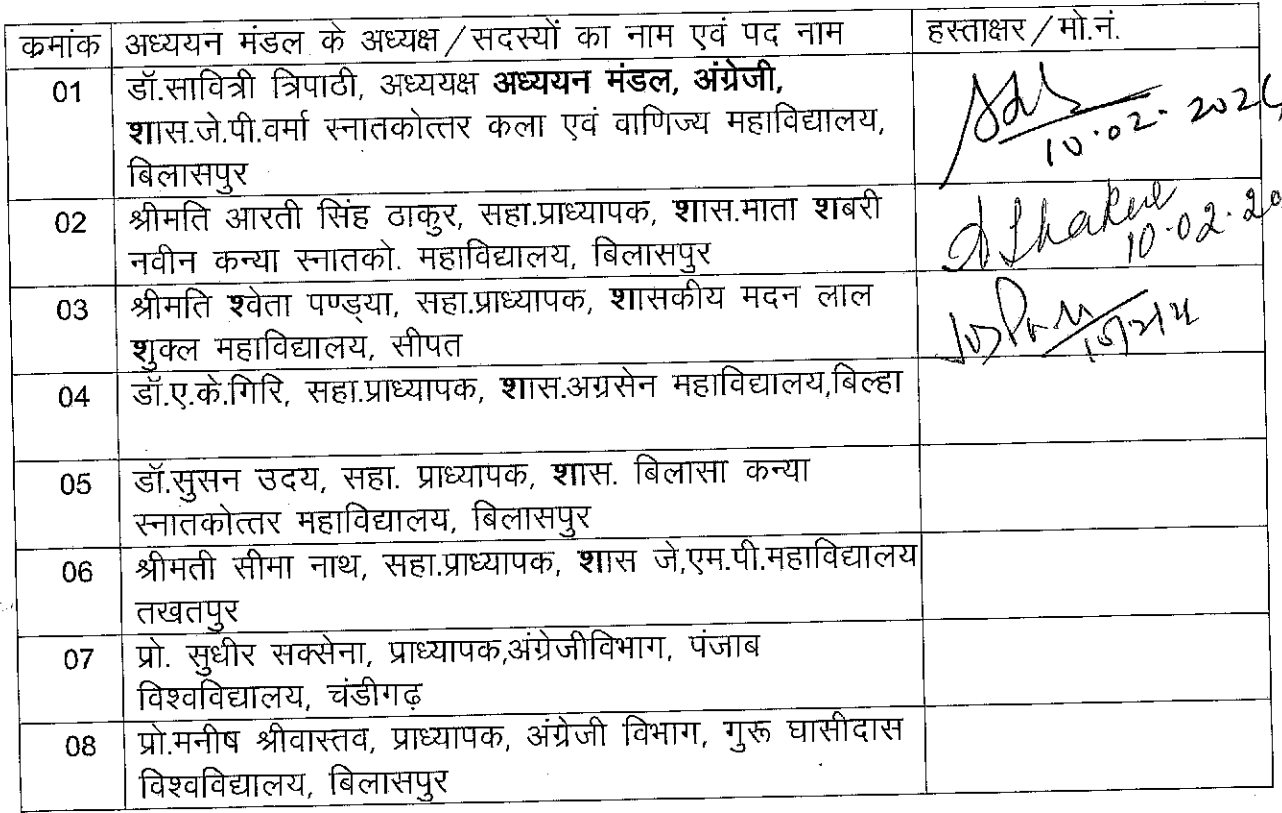 क्रमांक अध्ययन मंडल के अध्यक्ष/सदस्यों का नाम एवं पद नाम हस्ताक्षर/मो.नं.
01 डॉ.सावित्री त्रिपाठी, अध्ययक्ष अध्ययन मंडल, अंग्रेजी,
शास.जे.पी.वर्मा स्नातकोत्तर कला एवं वाणिज्य महाविद्यालय,
बिलासपुर
10.02.202
02 श्रीमति आरती सिंह ठाकुर, सहा.प्राध्यापक, शास.माता शबरी
नवीन कन्या स्नातको. महाविद्यालय, बिलासपुर
AThakur
10.02.20
03 श्रीमति श्वेता पण्ड्या, सहा.प्राध्यापक, शासकीय मदन लाल
शुक्ल महाविद्यालय, सीपत
04 डॉ.ए.के.गिरि, सहा.प्राध्यापक, शास.अग्रसेन महाविद्यालय,बिल्हा
05 डॉ.सुसन उदय, सहा. प्राध्यापक, शास. बिलासा कन्या
स्नातकोत्तर महाविद्यालय, बिलासपुर
06 श्रीमती सीमा नाथ, सहा.प्राध्यापक, शास जे,एम.पी.महाविद्यालय
तखतपुर
07 प्रो. सुधीर सक्सेना, प्राध्यापक,अंग्रेजीविभाग, पंजाब
विश्वविद्यालय, चंडीगढ़
08 प्रो.मनीष श्रीवास्तव, प्राध्यापक, अंग्रेजी विभाग, गुरू घासीदास
विश्वविद्यालय, बिलासपुर